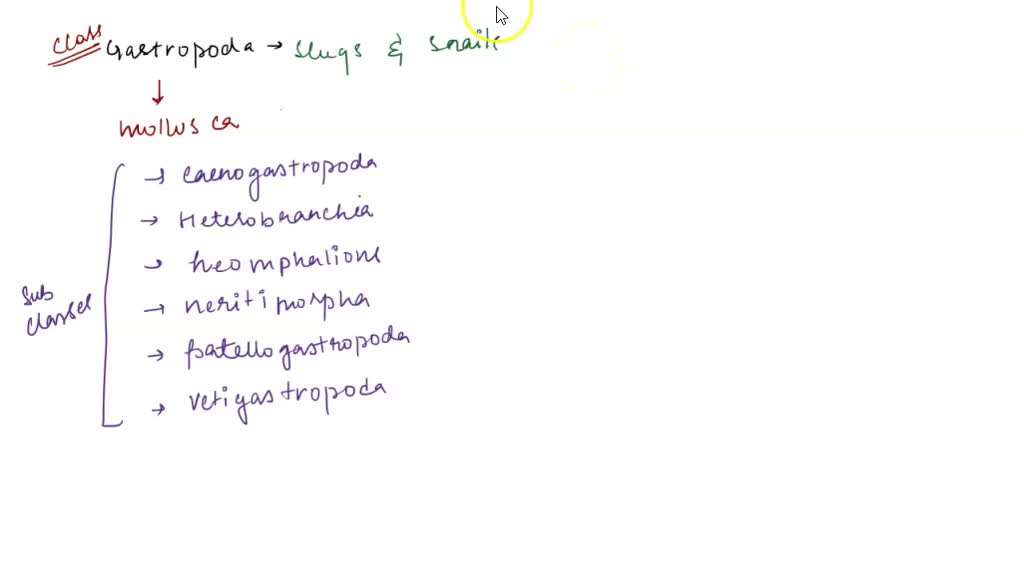 class Gastropoda → slugs & snails
↓
mollusca
→ caenogastropoda
→ Heterobranchia
→ neomphalione
→ neritimorpha
→ patellogastropoda
→ vetigastropoda
Sub
classes